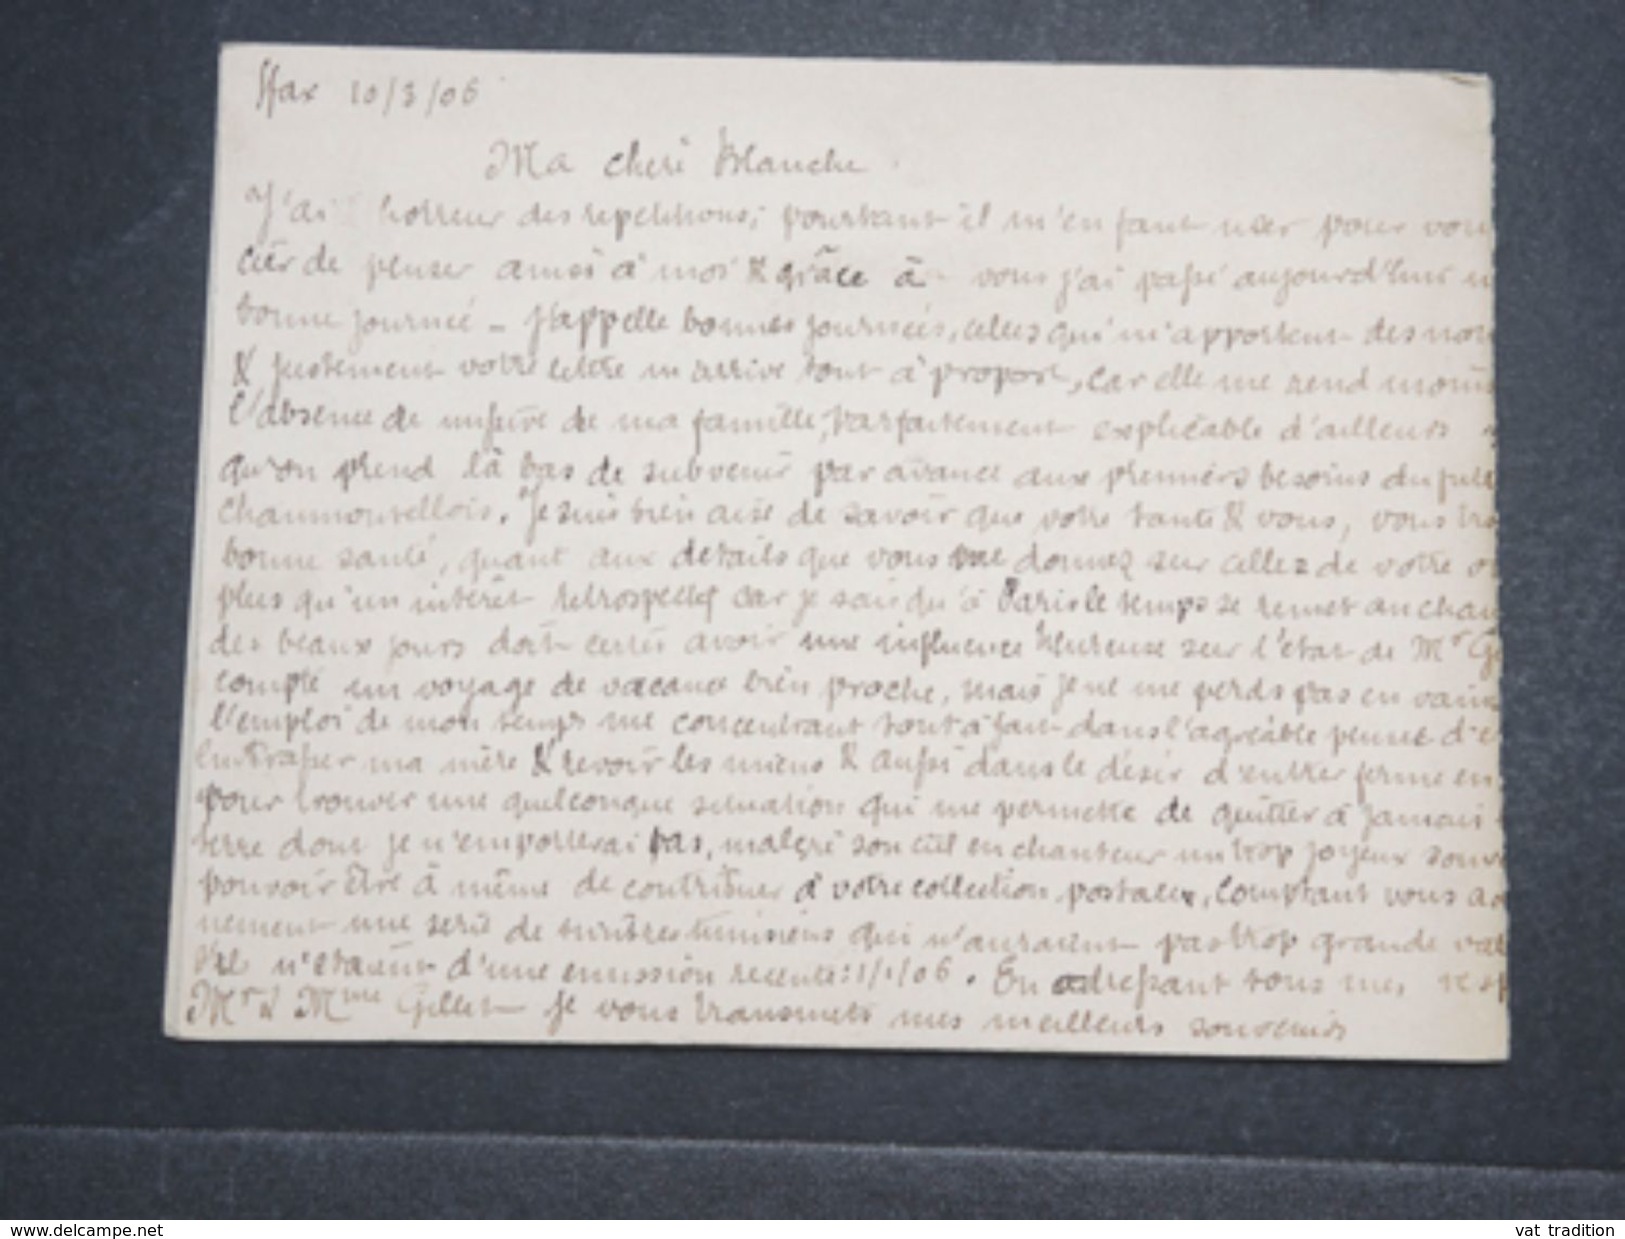 Sfax 10/3/06
Ma cheri Blanche
J'ai horreur des repetitions, pourtant il m'en faut user pour vous
cier de penser ainsi à moi & grâce à vous j'ai passé aujourd'hui u
bonne journée - J'appelle bonnes journées, celles qui m'apportent des nou
& justement votre lettre m'arrive tout à propos, car elle me rend moins
l'absence de missive de ma famille, parfaitement explicable d'ailleurs
qu'on prend là bas de subvenir par avance aux premiers besoins du
Chaumontellois. Je suis bien aise de savoir que votre tante & vous, vous
bonne santé, quant aux details que vous me donnez sur celles de votre
plus qu'un intérêt retrospectif car je sais qu'à Paris le temps se remet au
des beaux jours doit avoir une influence heureuse sur l'état de Mr G
compte un voyage de vacance bien proche, mais je ne me perds pas en
l'emploi de mon temps me concentrant tout à fait dans l'agréable d'e
ma mère & revoir les miens & aussi dans le désir d'entrer ferme en
pour trouver une quelconque situation qui me permette de quitter à jamais
terre dont je n'emporterai pas, malgré son ciel enchanteur un trop joyeux souv
pouvoir être à même de contribuer à votre collection postale, comptant vous
nement une serie de timbres tunisiens qui n'auraient pas trop grande val
s'ils n'etaient d'une emission recente: 1/1/06. En adressant tous mes
Mr & Mme Gillet je vous transmets mes meilleurs souvenirs
www.delcampe.net
vat tradition